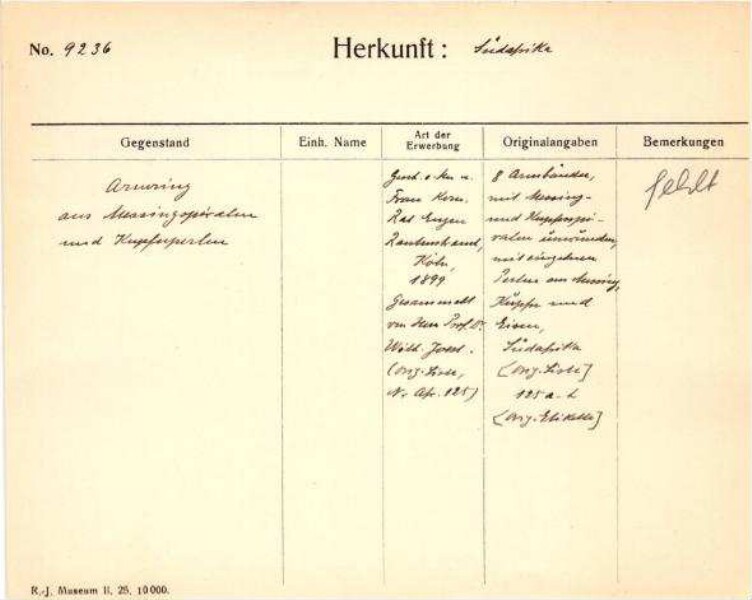 No. 9236
Herkunft: Südafrika
Gegenstand
Einh. Name
Art der
Erwerbung
Originalangaben
Bemerkungen
Armring
aus Messingspiralen
und Kupferperlen
Gesch. v.
Frau Kom.
Rat Eugen
Rautenstrauch,
Köln,
1899
Gesammelt
von Herr Prof. Dr.
Wilh. Joest.
(Orig. Liste,
Nr. Afr. 125)
8 Armbänder,
mit Messing-
und Kupferspi-
ralen umwunden,
mit einzelnen
Perlen aus Messing,
Kupfer und
Eisen,
Südafrika
[Orig. Liste]
125 a-h
[Orig. Etikette]
fehlt
R.-J. Museum II. 25. 10000.